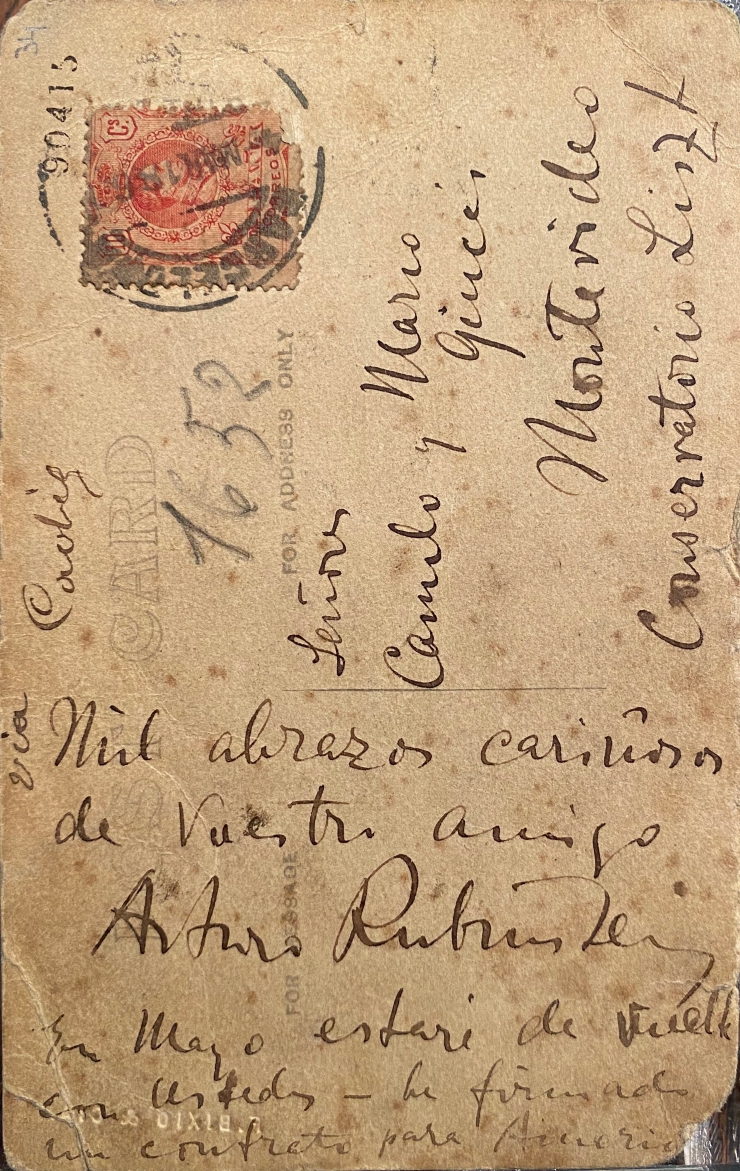 34
90415
10 Cs.
CORREOS
POST CARD
FOR ADDRESS ONLY
1652
via Cadiz
Señores
Camilo y Mario
Giucci
Montevideo
Conservatorio Liszt
FOR MESSAGE
Mil abrazos cariñosos
de Vuestro amigo
Arturo Rubinstein
En Mayo estaré de vuelta
con Ustedes – he firmado
un contrato para America
BIXIO &